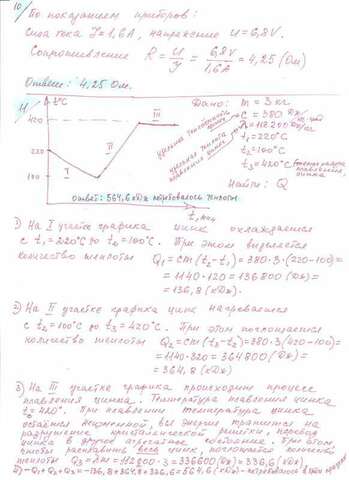 10) По показаниям приборов:
Сила тока J=1,6A, напряжение U=6,8V.
Сопротивление R = U/J = 6,8V/1,6A = 4,25 (Ом)
Ответ: 4,25 Ом.
11) t°C
420
220
100
I
II
III
t, мин
ответ: 564,6 кДж потребовалось теплоты
удельная теплоёмкость цинка
удельная теплота плавления цинка
Дано: m = 3 кг
c = 380 Дж/кг·град
λ = 112200 Дж/кг
t₁ = 220°C
t₂ = 100°C
t₃ = 420°C температура плавления цинка
Найти: Q
1) На I участке графика цинк охлаждается
с t₁ = 220°C до t₂ = 100°C. При этом выделяется
количество теплоты Q₁ = cm(t₂-t₁) = 380·3·(220-100) =
= 1140·120 = 136800 (Дж) =
= 136,8 (кДж).
2) На II участке графика цинк нагревается
с t₂ = 100°C до t₃ = 420°C. При этом поглощается
количество теплоты Q₂ = cm(t₃-t₂) = 380·3(420-100) =
= 1140·320 = 364800 (Дж) =
= 364,8 (кДж)
3) На III участке графика происходит процесс
плавления цинка. Температура плавления цинка
t₃ = 420°. При плавлении температура цинка
остаётся неизменной, вся энергия тратится на
разрушение кристаллической решётки, перевод
цинка в другое агрегатное состояние. При этом,
чтобы расплавить весь цинк, поглощается количество
теплоты Q₃ = λm = 112200·3 = 336600 (Дж) = 336,6 (кДж).
4) -Q₁+Q₂+Q₃ = -136,8+364,8+336,6 = 564,6 (кДж) - потребовалось